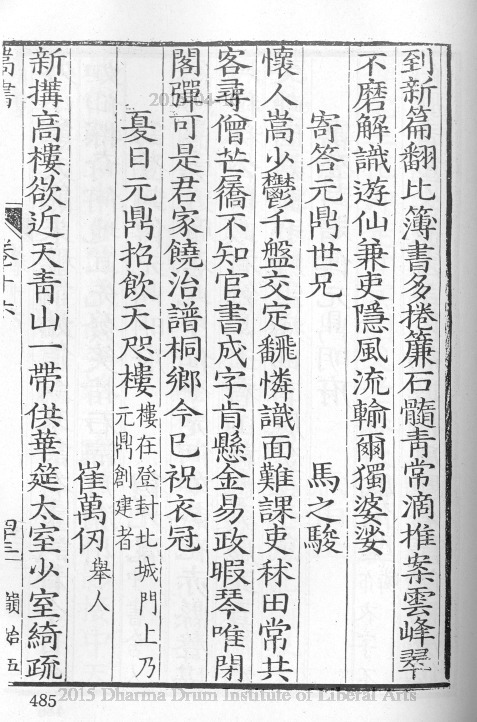 到新篇翻比簿書多捲簾石髓靑常滴推案雲峰翠
不磨解識遊仙兼吏隱風流輸爾獨婆娑
寄答元鼎世兄 馬之駿
懷人嵩少鬱千盤交定飜憐識面難課吏秫田常共
客尋僧芒屩不知官書成字肯懸金易政暇琴唯閉
閣彈可是君家饒治譜桐鄉今已祝衣冠
夏日元鼎招飲天咫樓 樓在登封北城門上乃
元鼎創建者
崔萬仞 舉人
新搆高樓欲近天靑山一帶供華筵太室少室綺疏
嵩書 卷十六
485
2015 Dharma Drum Institute of Liberal Arts